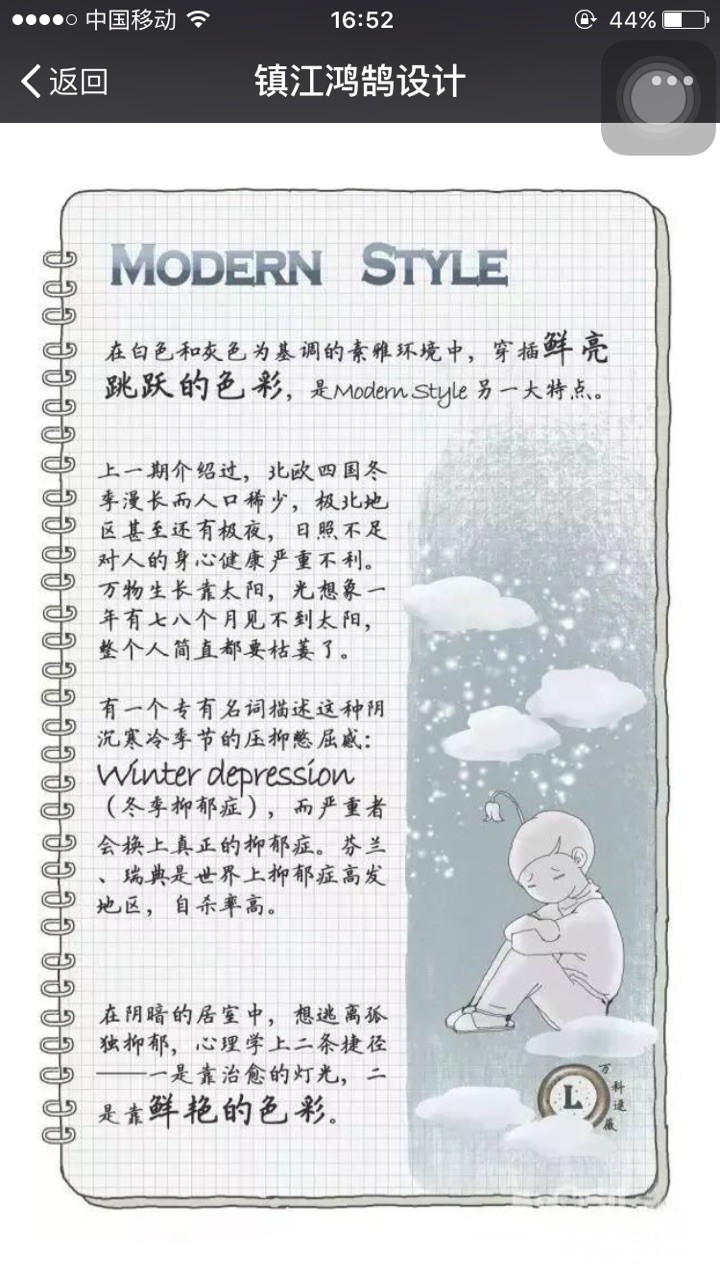 中国移动
16:52
44%
返回
镇江鸿鹄设计
MODERN STYLE
在白色和灰色为基调的素雅环境中，穿插鲜亮
跳跃的色彩，是Modern Style 另一大特点。
上一期介绍过，北欧四国冬
季漫长而人口稀少，极北地
区甚至还有极夜，日照不足
对人的身心健康严重不利。
万物生长靠太阳，光想象一
年有七八个月见不到太阳，
整个人简直都要枯萎了。
有一个专有名词描述这种阴
沉寒冷季节的压抑憋屈感：
Winter depression
（冬季抑郁症），而严重者
会换上真正的抑郁症。芬兰
、瑞典是世界上抑郁症高发
地区，自杀率高。
在阴暗的居室中，想逃离孤
独抑郁，心理学上二条捷径
——一是靠治愈的灯光，二
是靠鲜艳的色彩。
L
万科